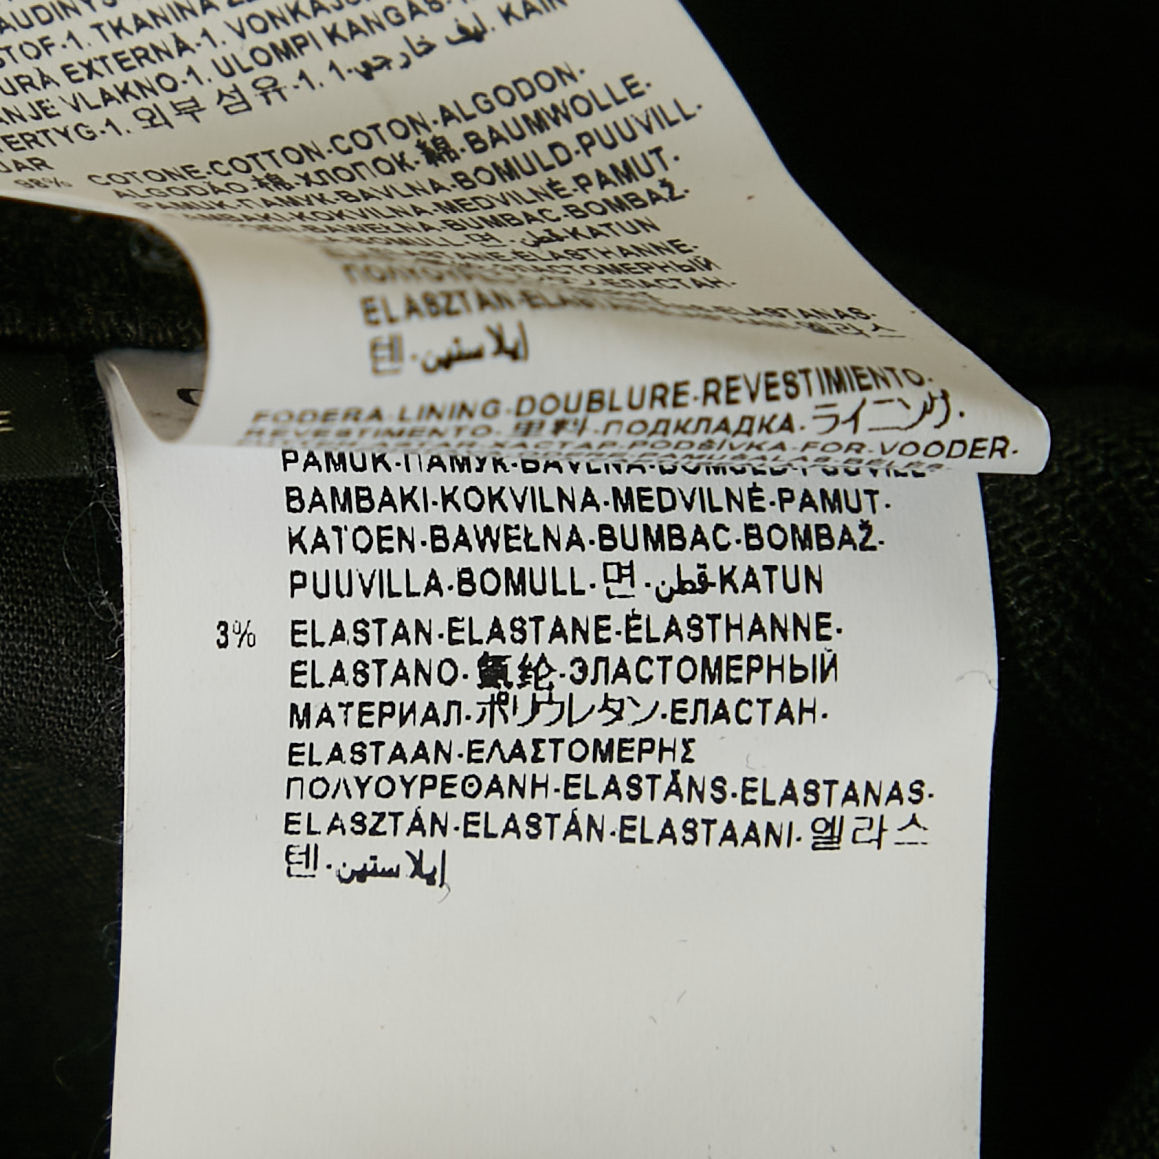 STOF-1. TKANINA
EXTERNĂ-1.
VLAKNO-1. ULOMPI KANGAS-
외부 섬유-1. 1-ليف خارجي. KAIN
98% COTONE-COTTON-COTON-ALGODON-
ALGODÃO-棉-ХЛОПОК-綿-BAUMWOLLE-
PAMUK-ПАМУК-BAVLNA-BOMULD-PUUVILL-
KOKVILNA-MEDVILNĖ-PAMUT-
BAWEŁNA-BUMBAC-BOMBAŽ-
BOMULL-면-قطن-KATUN
ELASTANE-ÉLASTHANNE-
ЭЛАСТОМЕРНЫЙ
ЕЛАСТАН-
ELASTANAS-
ELASZTÁN- 엘라스
텐-إيلاستين
FODERA-LINING-DOUBLURE-REVESTIMIENTO-
REVESTIMENTO-里料-ПОДКЛАДКА-ライニング-
PODŠÍVKA-FOR-VOODER-
PAMUK-ПАМУК-BAVLNA-BOMULD-PUUVILL-
BAMBAKI-KOKVILNA-MEDVILNĖ-PAMUT-
KATOEN-BAWEŁNA-BUMBAC-BOMBAŽ-
PUUVILLA-BOMULL-면-قطن-KATUN
3% ELASTAN-ELASTANE-ÉLASTHANNE-
ELASTANO-氨纶-ЭЛАСТОМЕРНЫЙ
МАТЕРИАЛ-ポリウレタン-ЕЛАСТАН-
ELASTAAN-ΕΛΑΣΤΟΜΕΡΗΣ
ΠΟΛΥΟΥΡΕΘΑΝΗ-ELASTĀNS-ELASTANAS-
ELASZTÁN-ELASTÁN-ELASTAANI-엘라스
텐-إيلاستين